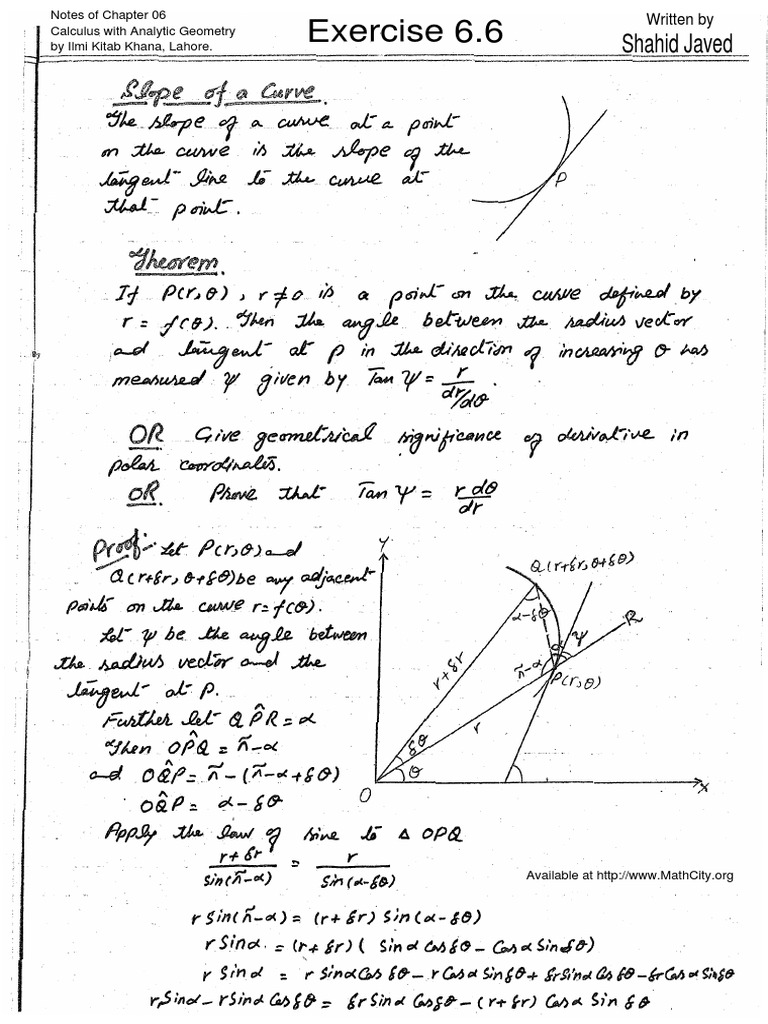 Notes of Chapter 06
Calculus with Analytic Geometry
by Ilmi Kitab Khana, Lahore.
Exercise 6.6
Written by
Shahid Javed
Slope of a Curve.
The slope of a curve at a point
on the curve is the slope of the
tangent line to the curve at
that point.
P
Theorem.
If P(r,θ), r≠0 is a point on the curve defined by
r = f(θ). Then the angle between the radius vector
and tangent at P in the direction of increasing θ has
measured ψ given by Tan ψ = r / (dr/dθ).
OR Give geometrical significance of derivative in
polar coordinates.
OR. Prove that Tan ψ = r dθ/dr
Proof:- Let P(r,θ) and
Q(r+δr, θ+δθ) be any adjacent
points on the curve r=f(θ).
Let ψ be the angle between
the radius vector and the
tangent at P.
Further let QP̂R = α
Then OP̂Q = π-α
and OQ̂P = π-(π-α+δθ)
OQ̂P = α-δθ
Y
Q(r+δr, θ+δθ)
α-δθ
R
ψ
α
π-α
P(r,θ)
r+δr
r
δθ
θ
O
X
Apply the law of sine to Δ OPQ
(r+δr)/Sin(π-α) = r/Sin(α-δθ)
Available at http://www.MathCity.org
r Sin(π-α) = (r+δr) Sin(α-δθ)
r Sinα = (r+δr) ( Sinα Cosδθ - Cosα Sinδθ)
r Sinα = r Sinα Cos δθ - r Cosα Sinδθ + δr Sinα Cos δθ - δr Cosα Sinδθ
r Sinα - r Sinα Cosδθ = δr Sinα Cosδθ - (r+δr) Cosα Sin δθ